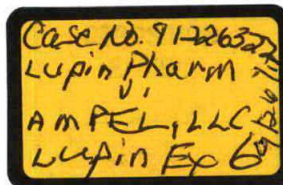 Case No. 91226322
Lupin Pharm
v.
AMPEL, LLC
Lupin Ex 6